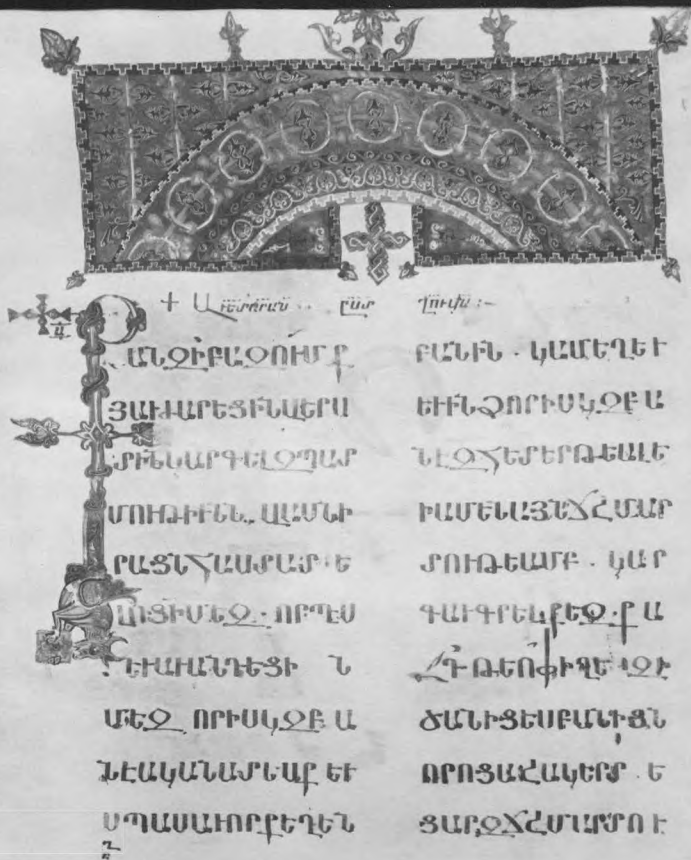 + Աւետարան ըստ Ղուկա :-
ՔԱՆԶԻԲԱԶՈՒՄՔ
ՅԱՒԺԱՐԵՑԻՆՎԵՐՍ
ՏԻՆԿԱՐԳԵԼԶՊԱՏ
ՄՈՒԹԻՒՆՆ. ՎԱՍՆԻ
ՐԱՑՆՀԱՍՏԱՏԵ
ԼՈՑԻՄԵԶ. ՈՐՊԷՍ
ԵՒԱՒԱՆԴԵՑԻՆ
ՄԵԶ ՈՐԻՍԿԶԲԱ
ՆԷԱԿԱՆԱՏԵՍՔԵՒ
ՍՊԱՍԱՒՈՐՔԵՂԵՆ
ԲԱՆԻՆ. ԿԱՄԵՂԵՒ
ԵՒԻՆՁՈՐԻՍԿԶԲԱ
ՆԷԶՀԵՏԵՐԹԵԱԼԷ
ԻԱՄԵՆԱՅՆՃՇՄԱՐ
ՏՈՒԹԵԱՄԲ. ԿԱՐ
ԳԱՒԳՐԵԼՔԵԶ.ՔԱ
ՋԴԹԵՈՓԻՂԷ ԶԻ
ԾԱՆԻՑԵՍԲԱՆԻՑՆ
ՈՐՈՑԱՇԱԿԵՐՏԵ
ՑԱՐԶՃՇՄԱՐՏՈՒ